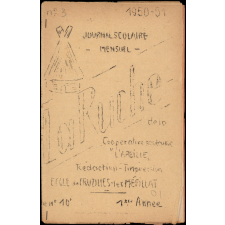 n° 3 1950-51
JOURNAL SCOLAIRE
- MENSUEL -
La Ruche
de la
Coopérative scolaire
"L'ABEILLE"
Rédaction-Impression
ECOLE de
n° 10 1ère Année